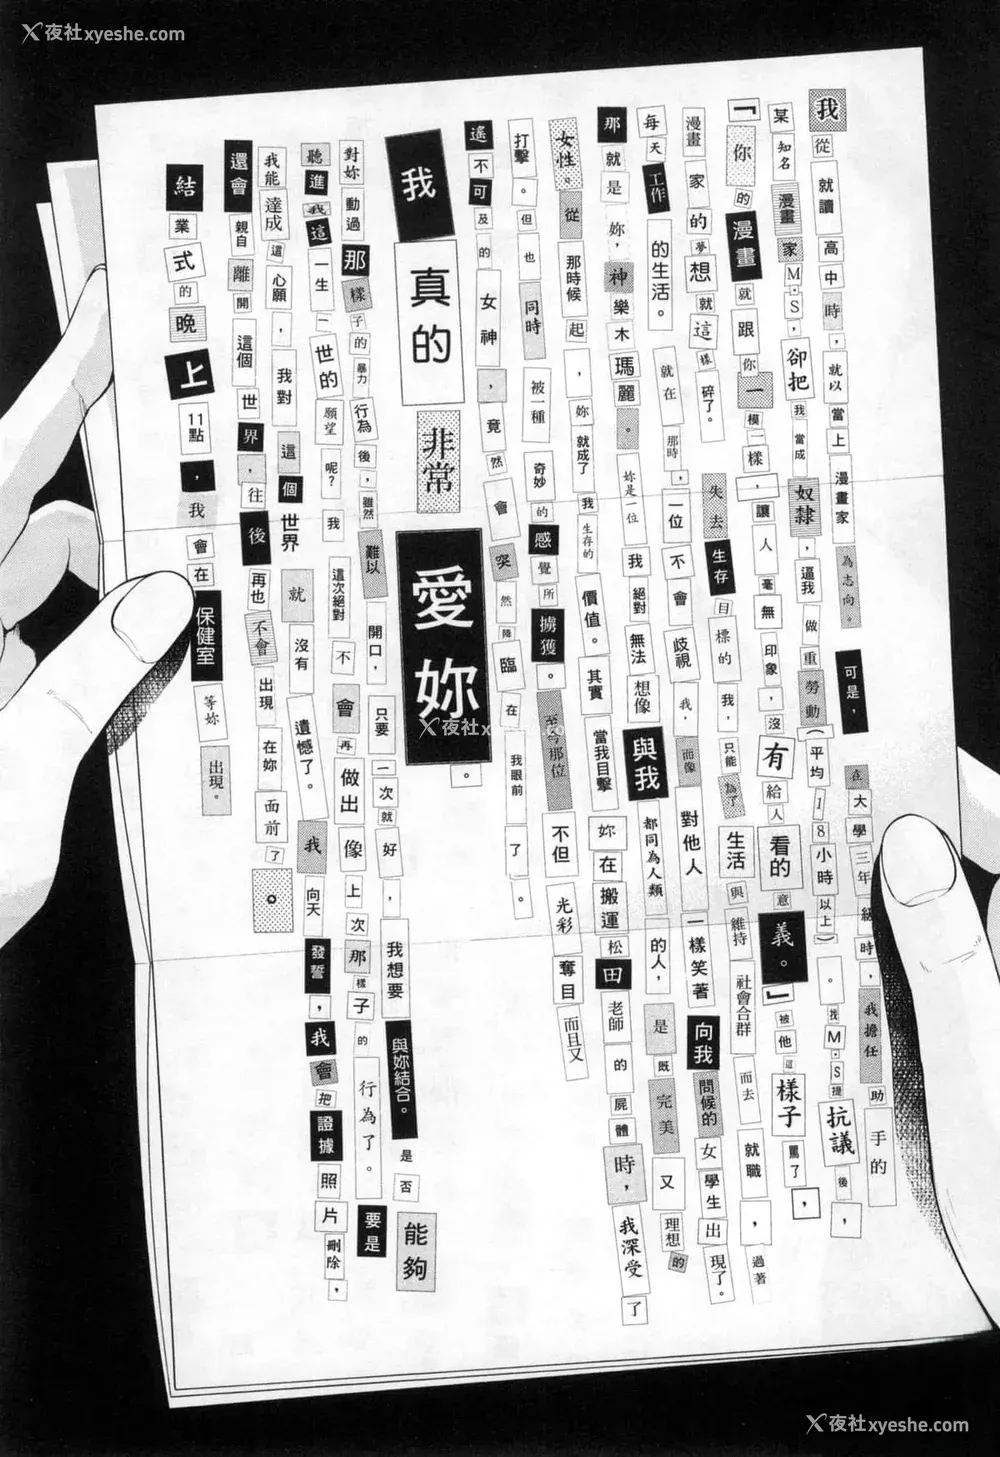 夜社xyeshe.com
我從就讀高中時，就以當上漫畫家為志向。可是，在大學三年級時，我擔任助手的
某知名漫畫家M·S，卻把我當成奴隸，逼我做重勞動（平均18小時以上）。找M·S提抗議後，
「你的漫畫就跟你一模一樣，讓人毫無印象，沒有給人看的意義。」被他這樣子罵了，
漫畫家的夢想就這樣碎了。失去生存目標的我，只能為了生活與維持社會合群而去就職，過著
每天工作的生活。就在那時，一位不會歧視我，而像對他人一樣笑著向我問候的女學生出現了。
那就是妳，神樂木瑪麗。妳是一位我絕對無法想像與我都同為人類的人，是既完美又理想的
女性。從那時候起，妳就成了我生存的價值。其實當我目擊妳在搬運松田老師的屍體時，我深受了
打擊。但也同時被一種奇妙的感覺所擄獲。至今那位不但光彩奪目而且又
遙不可及的女神，竟然會突然降臨在我眼前了。
我真的非常愛妳。
對妳動過那樣子的暴力行為後，雖然難以開口，只要一次就好，我想要與妳結合。是否能夠
聽進我這一生一世的願望呢？我這次絕對不會再做出像上次那樣子的行為了。要是
我能達成這心願，我對這個世界就沒有遺憾了。我向天發誓，我會把證據照片刪除，
還會親自離開這個世界，往後再也不會出現在妳面前了。
結業式的晚上11點，我會在保健室等妳出現。
夜社xyeshe.com
夜社xyeshe.com